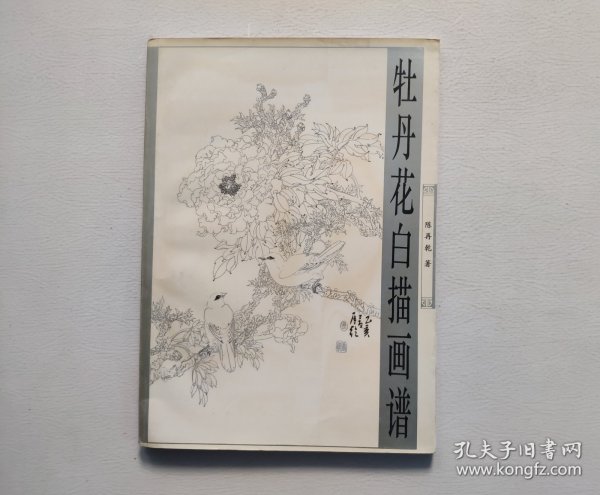 牡丹花白描画谱
陈再乾 著
孔夫子旧书网
www.kongfz.com